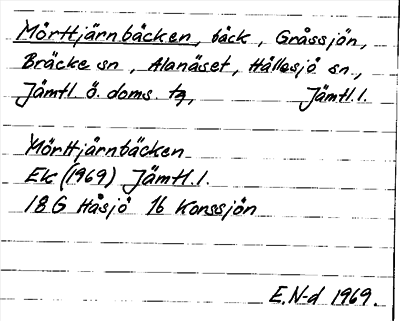 Mörttjärnbäcken, bäck, Gråssjön,
Bräcke sn, Alanäset, Hällesjö sn.,
Jämtl. ö. doms. tg, Jämtl.l.
Mörttjärnbäcken
Ek (1969) Jämtl.l.
18G Håsjö 1b Konssjön
E.N-d 1969.